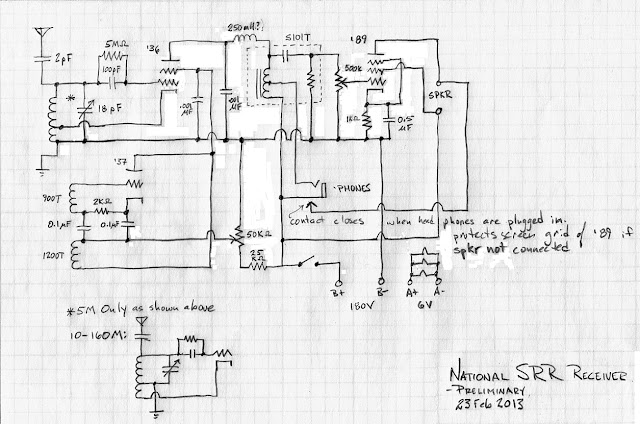 250mH?
S101T
'89
2pF
5MΩ
100pF
'36
500K
SPKR
*
18pF
.001
μF
.001
μF
1KΩ
0.5
μF
'37
900T
2KΩ
0.1μF
0.1μF
1200T
50KΩ
25
KΩ
PHONES
contact closes when head phones are plugged in.
protects screen grid of '89 if
spkr not connected
B+
180V
B-
A+
6V
A-
*5M Only as shown above
10-160M:
NATIONAL SRR RECEIVER
-PRELIMINARY
23 Feb 2013